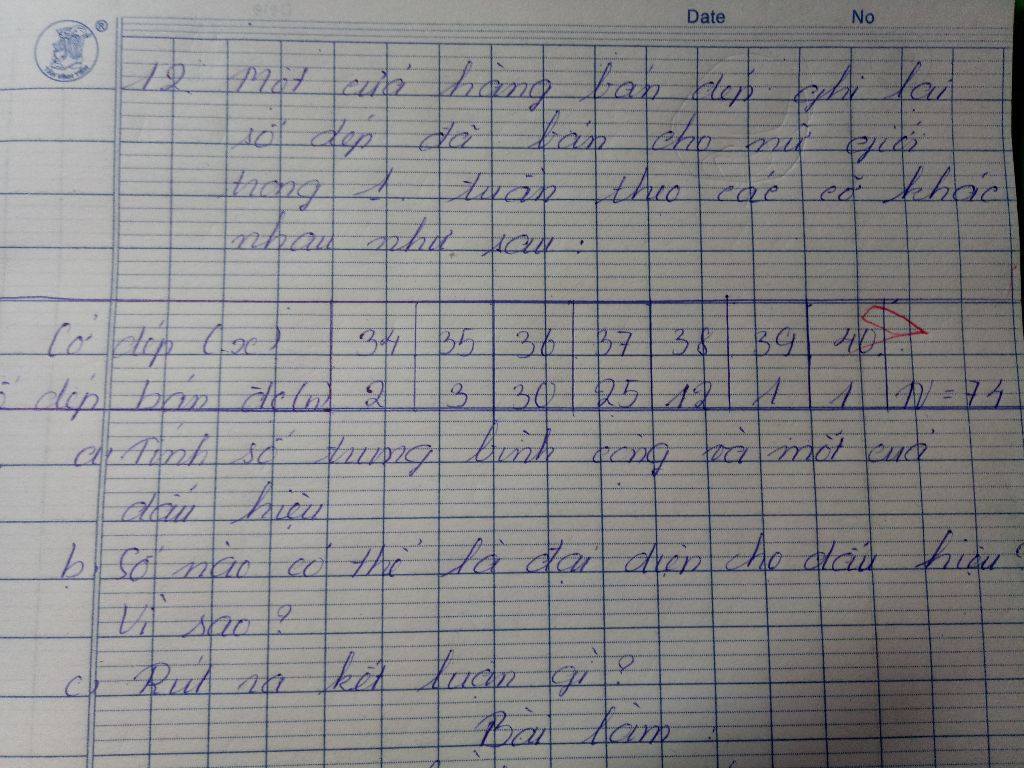 Date No
12. Một cửa hàng bán dép ghi lại
số dép đã bán cho nữ giới
trong 1 tuần theo các cỡ khác
nhau như sau:
Cỡ dép (x) 34 35 36 37 38 39 40
Số dép bán đc(n) 2 3 30 25 12 1 1 N = 74
a, Tính số trung bình cộng và mốt của
dấu hiệu
b, Số nào có thể là đại diện cho dấu hiệu?
Vì sao?
c, Rút ra kết luận gì?
Bài làm